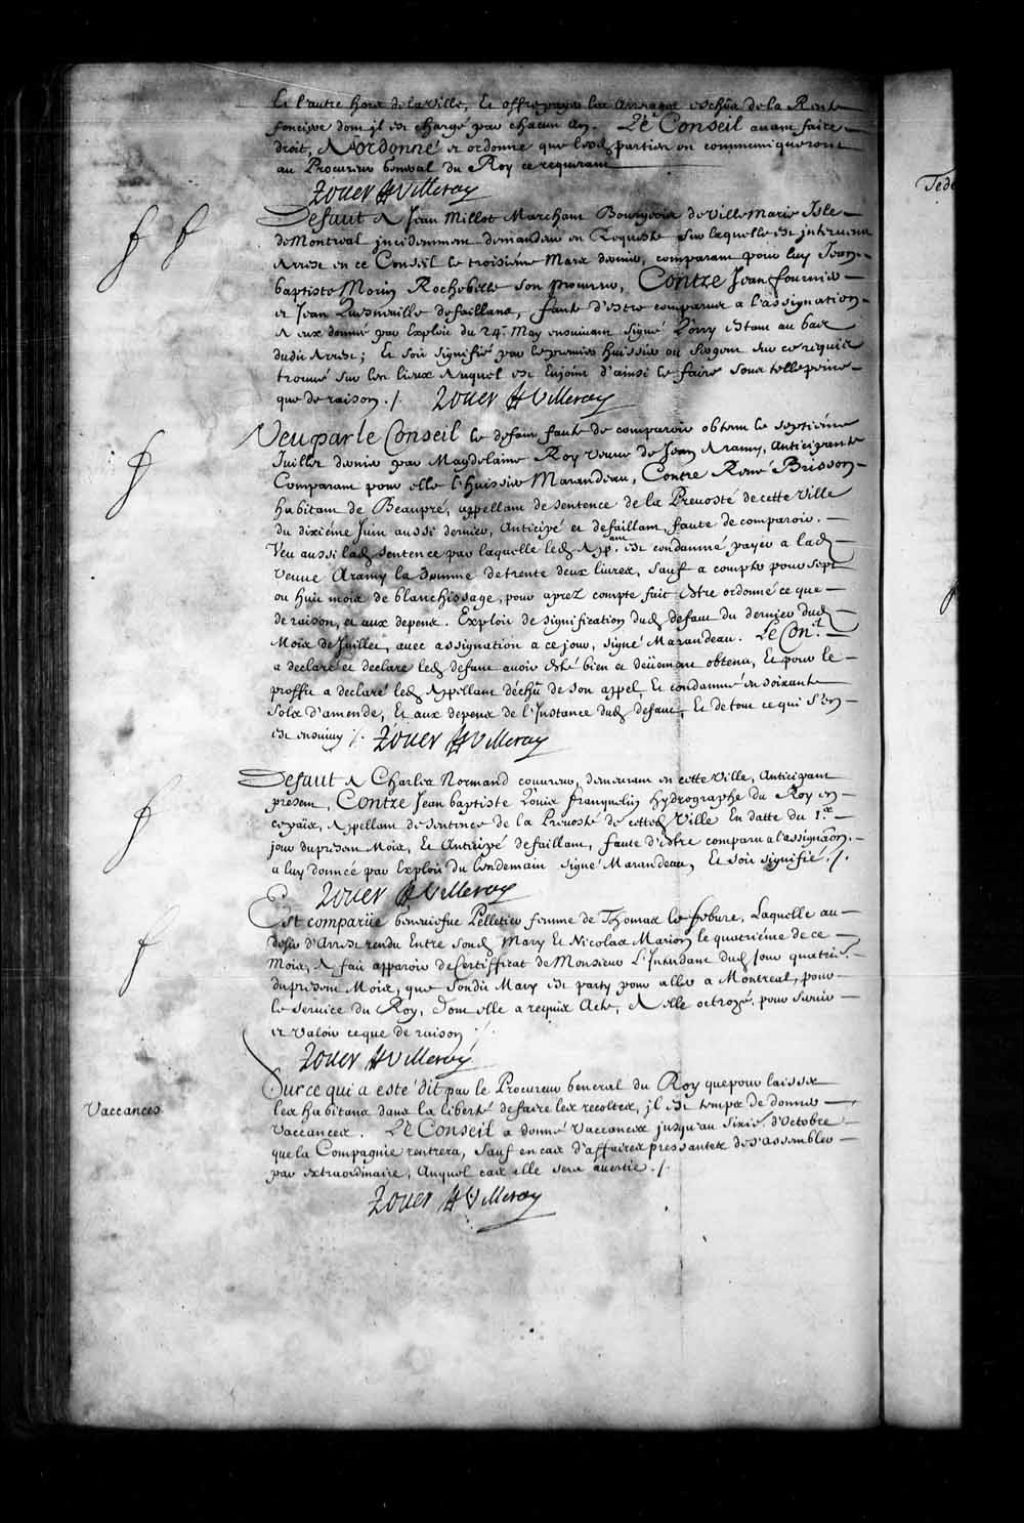 Et l'autre hors de la Ville, Et offre payer les arrerages escheus de la Rente
fonciere dont jl est chargé par chacun an. Le Conseil auant faire
droit, A ordonné et ordonne que lesd parties en communiqueront
au Procureur general du Roy ce requerant
Rouer HVilleray
Defaut A Jean Millot Marchant Bourgeois de Ville Marie Isle
de Montreal jncidemment demandeur en Requeste Sur laquelle est jnteruenu
Arrest en ce Conseil le troisiéme Mars dernier, comparant pour luy Jean
baptiste Morin Rochebelle son procureur, Contre Jean fournier
et Jean Quesneuille defaillans, faute d'estre comparus a l'assignation
A eux donné par Exploit du 24e May ensuiuant signé Lory Estant au bas
dudit Arrest; Et soit signifié par le premier huissier ou Sergent sur ce requis
trouué sur les lieux Auquel est Enjoint d'ainsi le faire sous telle peine
que de raison ./. Rouer HVilleray
Veu par le Conseil le defaut faute de comparoir obtenu le septiéme
Juillet dernier par Magdelaine Roy veuue de Jean Aramy, Anticipante
Comparant pour elle l'huissier Marandeau, Contre René Brisson
habitant de Beaupré, appellant de sentence de la Preuosté de cette Ville
du dixiéme Juin aussi dernier, Anticipé et defaillant, faute de comparoir.
Veu aussi lad sentence par laquelle led App.ant est condamné payer a lad
veuue Aramy la Somme de trente deux liures, Sauf a compter pour sept
ou huit mois de blanchissage, pour aprez compte fait Estre ordonné ce que
de raison, et aux depens. Exploit de signification dud defaut du dernier dud
Mois de Juillet, auec assignation a ce jour, signé Marandeau. Le Con.il
a declaré et declare led defaut auoir esté bien et deüement obtenu, Et pour le
proffit a declaré led Appellant déchû de son appel, Et condamné en soixante
Sols d'amende, Et aux depens de l'Instance dud defaut, Et de tout ce qui s'en
est ensuiuy ./. Rouer HVilleray
Defaut A Charles Normand couureur, demeurant en cette Ville, Anticipant
présent, Contre Jean baptiste Louis franquelin hydrographe du Roy en
ce païs, Appellant de Sentence de la Preuosté de cetted Ville En datte du 1.er
jour du présent Mois, Et Anticipé defaillant, faute d'estre comparu a l'assignaõn
a luy donnée par Exploit du lendemain signé Marandeau, Et soit signifié ./.
Rouer HVilleray
Est comparüe Geneuiefue Pelletier femme de Thomas le febure, Laquelle au
desir d'Arrest rendu Entre sond Mary Et Nicolas Marion le quatriéme de ce
Mois, A fait apparoir de Certifficat de Monsieur L'Intendant dud Jour quatrié.
du présent Mois, que sondit Mary est party pour aller a Montreal, pour
le seruice du Roy, Dont elle a requis Acte, A elle octroyé. pour seruir
et valoir ce que de raison ./.
Rouer HVilleray
Vaccances
Sur ce qui a esté dit par le Procureur General du Roy que pour laisser
les habitans dans la liberté de faire les recoltes, jl est temps de donner
vaccances. Le Conseil a donné vaccances jusqu'au sixié. d'Octobre
que la Compagnie rentrera, sauf en cas d'affaires pressantes de s'assembler
par extraordinaire, Auquel cas elle sera auertie ./.
Rouer HVilleray